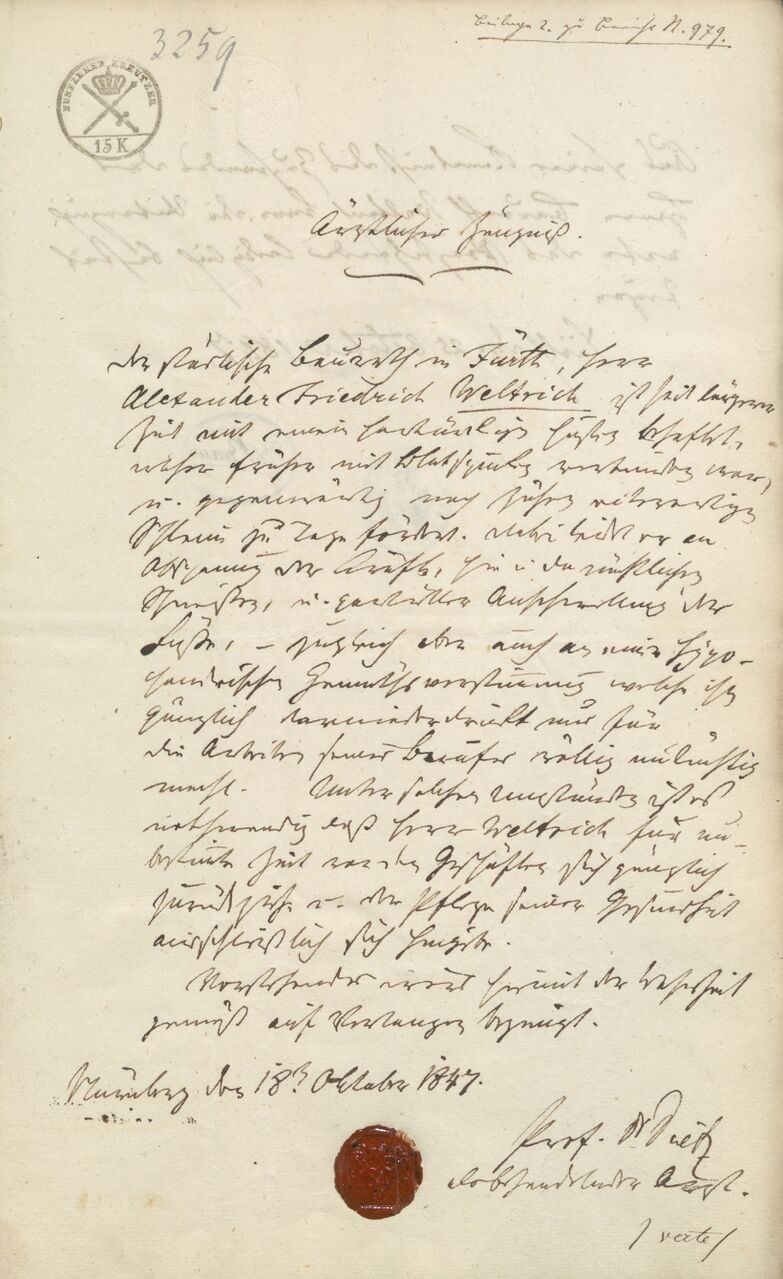 Beilage 2. zu Bericht N. 979.
3259
FUNFZEHEN KREUTZER
15 K
Ärztliches Zeugniß.
Der städtische Baurath in Fürth, Herr
Alexander Friedrich Weltrich ist seit längerer
Zeit mit einem hartnäckigen Husten behaftet,
welcher früher mit Blutspucken verbunden war,
u. gegenwärtig noch zähen eiterartigen
Schleim zu Tage fördert. Dabei leidet er an
Abnahme der Kräfte, hin u. da nächtlichen
Schweißen, u. partieller Anschwellung der
Füße, – zugleich aber auch an einer Hypo-
chondrischen Gemüthsverstimmung welche ihn
gänzlich darniederdrückt und für
die Arbeiten seines Berufes völlig untüchtig
macht. Unter solchen Umständen ist es
nothwendig daß Herr Weltrich für un-
bestimmte Zeit von den Geschäften sich gänzlich
zurückziehe u. der Pflege seiner Gesundheit
ausschließlich sich hingebe.
Vorstehendes wird hiermit der Wahrheit
gemäß auf Verlangen bezeugt.
Nürnberg den 18 Oktober 1847.
Prof. Dr Dietz
als behandelnder Arzt.
/ verte /